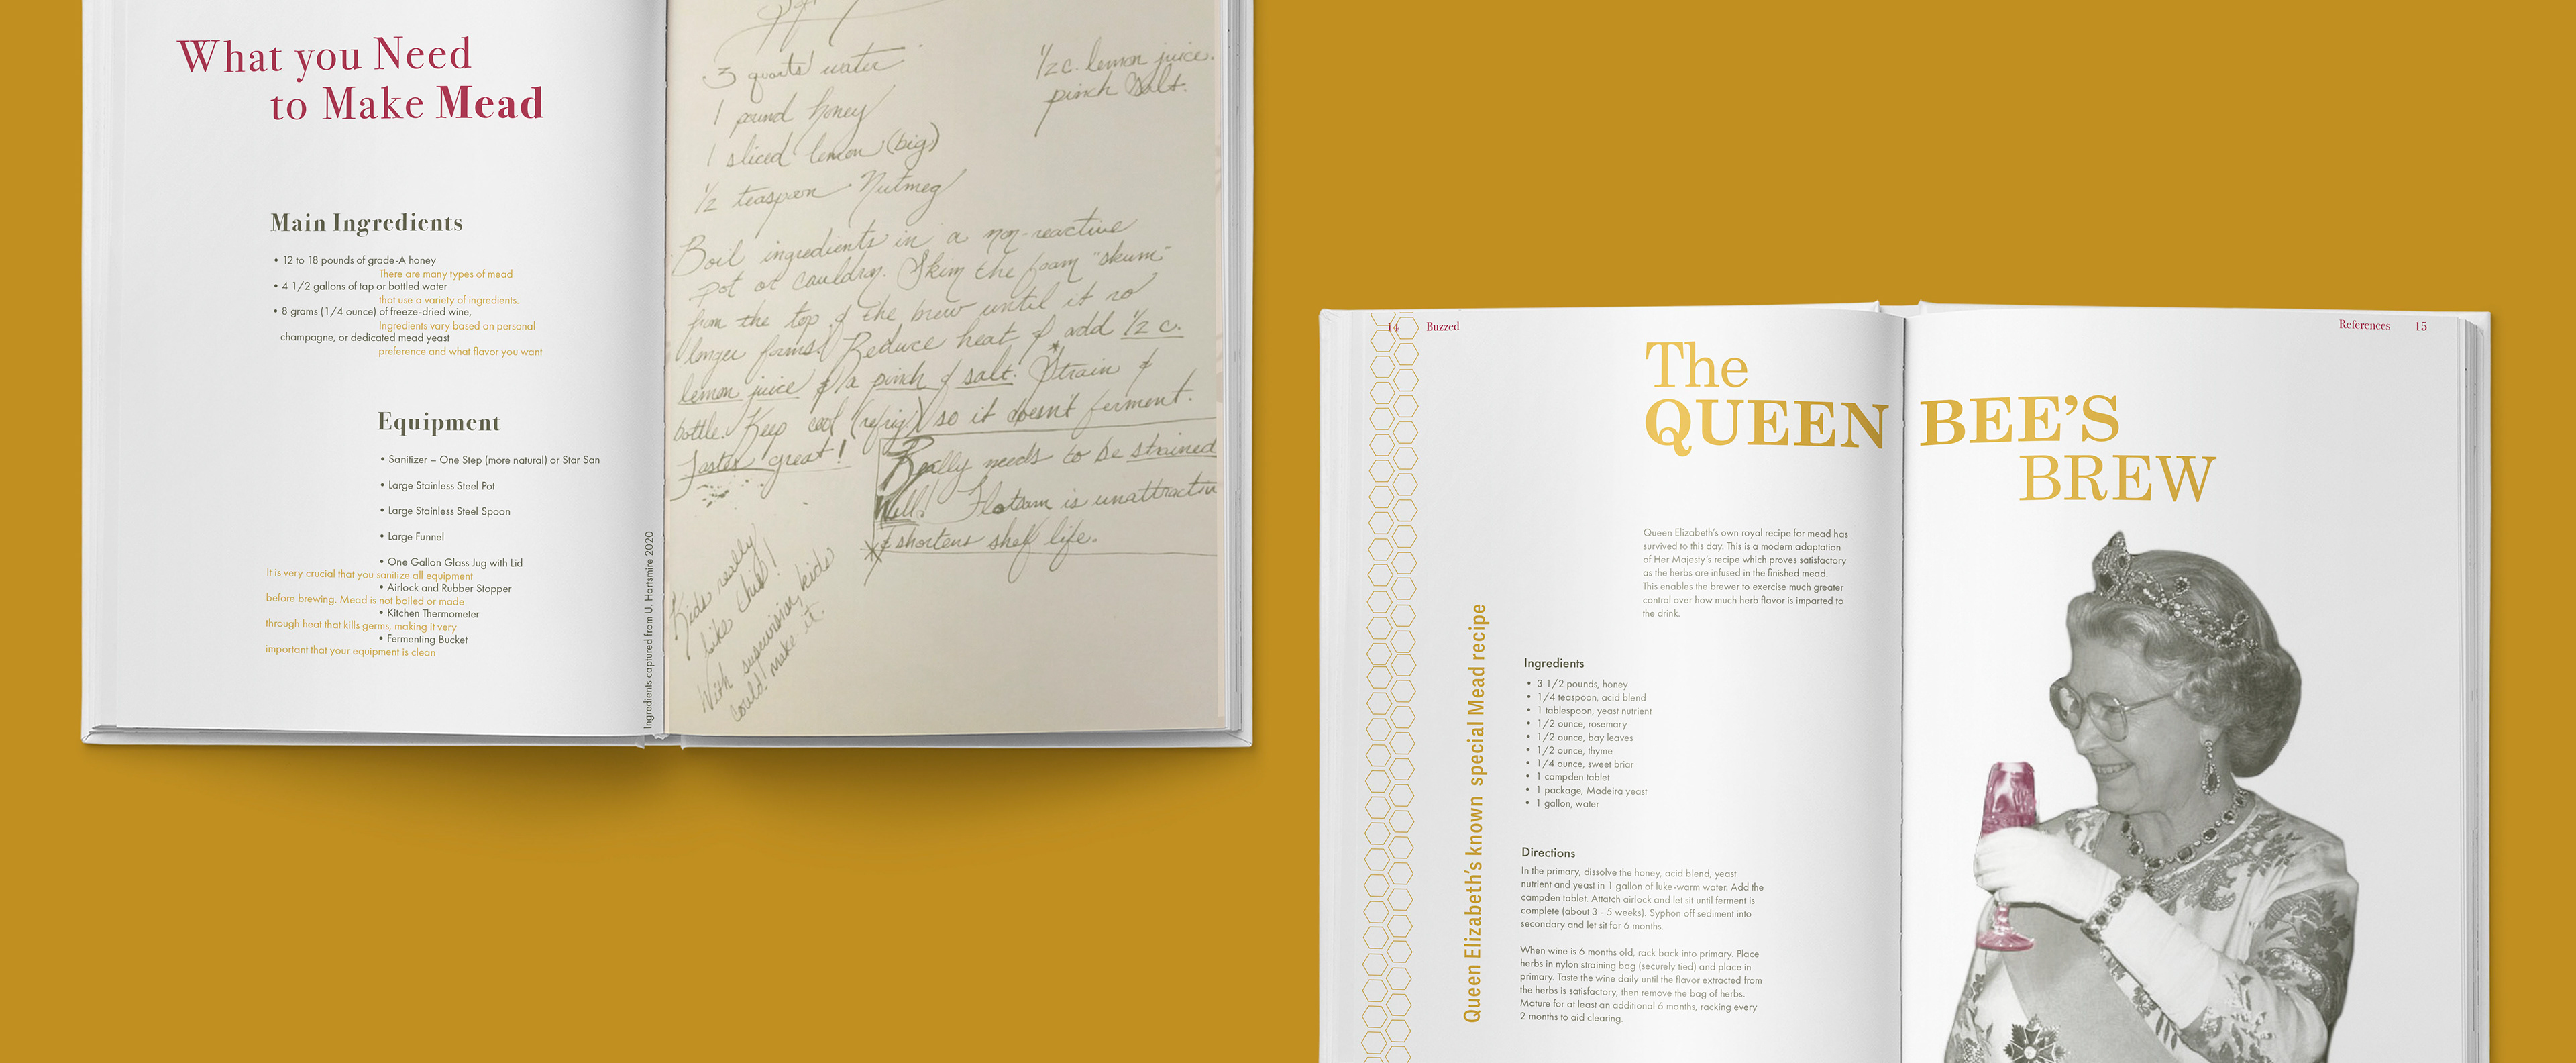 What you Need
to Make Mead
Main Ingredients
• 12 to 18 pounds of grade-A honey
There are many types of mead
• 4 1/2 gallons of tap or bottled water
that use a variety of ingredients.
• 8 grams (1/4 ounce) of freeze-dried wine,
Ingredients vary based on personal
champagne, or dedicated mead yeast
preference and what flavor you want
Equipment
• Sanitizer – One Step (more natural) or Star San
• Large Stainless Steel Pot
• Large Stainless Steel Spoon
• Large Funnel
• One Gallon Glass Jug with Lid
It is very crucial that you sanitize all equipment
• Airlock and Rubber Stopper
before brewing. Mead is not boiled or made
• Kitchen Thermometer
through heat that kills germs, making it very
• Fermenting Bucket
important that your equipment is clean
Ingredients captured from U. Hartsmire 2020
3 quarts water
1 pound honey
1 sliced lemon (big)
1/2 teaspoon Nutmeg
1/2 c. lemon juice.
pinch Salt.
Boil ingredients in a non-reactive
pot or cauldron. Skim the foam "skum"
from the top of the brew until it no
longer forms. Reduce heat & add 1/2 c.
lemon juice & a pinch of salt. Strain &
bottle. Keep cool (refrig) so it doesn't ferment.
Tastes great!
Really needs to be strained
Well! Flotsam is unattractive
& shortens shelf life.
Kids really
like this!
With supervision, kids
could make it.
14 Buzzed
References 15
The
QUEEN BEE'S
BREW
Queen Elizabeth's own royal recipe for mead has
survived to this day. This is a modern adaptation
of Her Majesty's recipe which proves satisfactory
as the herbs are infused in the finished mead.
This enables the brewer to exercise much greater
control over how much herb flavor is imparted to
the drink.
Queen Elizabeth's known special Mead recipe
Ingredients
• 3 1/2 pounds, honey
• 1/4 teaspoon, acid blend
• 1 tablespoon, yeast nutrient
• 1/2 ounce, rosemary
• 1/2 ounce, bay leaves
• 1/2 ounce, thyme
• 1/4 ounce, sweet briar
• 1 campden tablet
• 1 package, Madeira yeast
• 1 gallon, water
Directions
In the primary, dissolve the honey, acid blend, yeast
nutrient and yeast in 1 gallon of luke-warm water. Add the
campden tablet. Attatch airlock and let sit until ferment is
complete (about 3 - 5 weeks). Syphon off sediment into
secondary and let sit for 6 months.
When wine is 6 months old, rack back into primary. Place
herbs in nylon straining bag (securely tied) and place in
primary. Taste the wine daily until the flavor extracted from
the herbs is satisfactory, then remove the bag of herbs.
Mature for at least an additional 6 months, racking every
2 months to aid clearing.